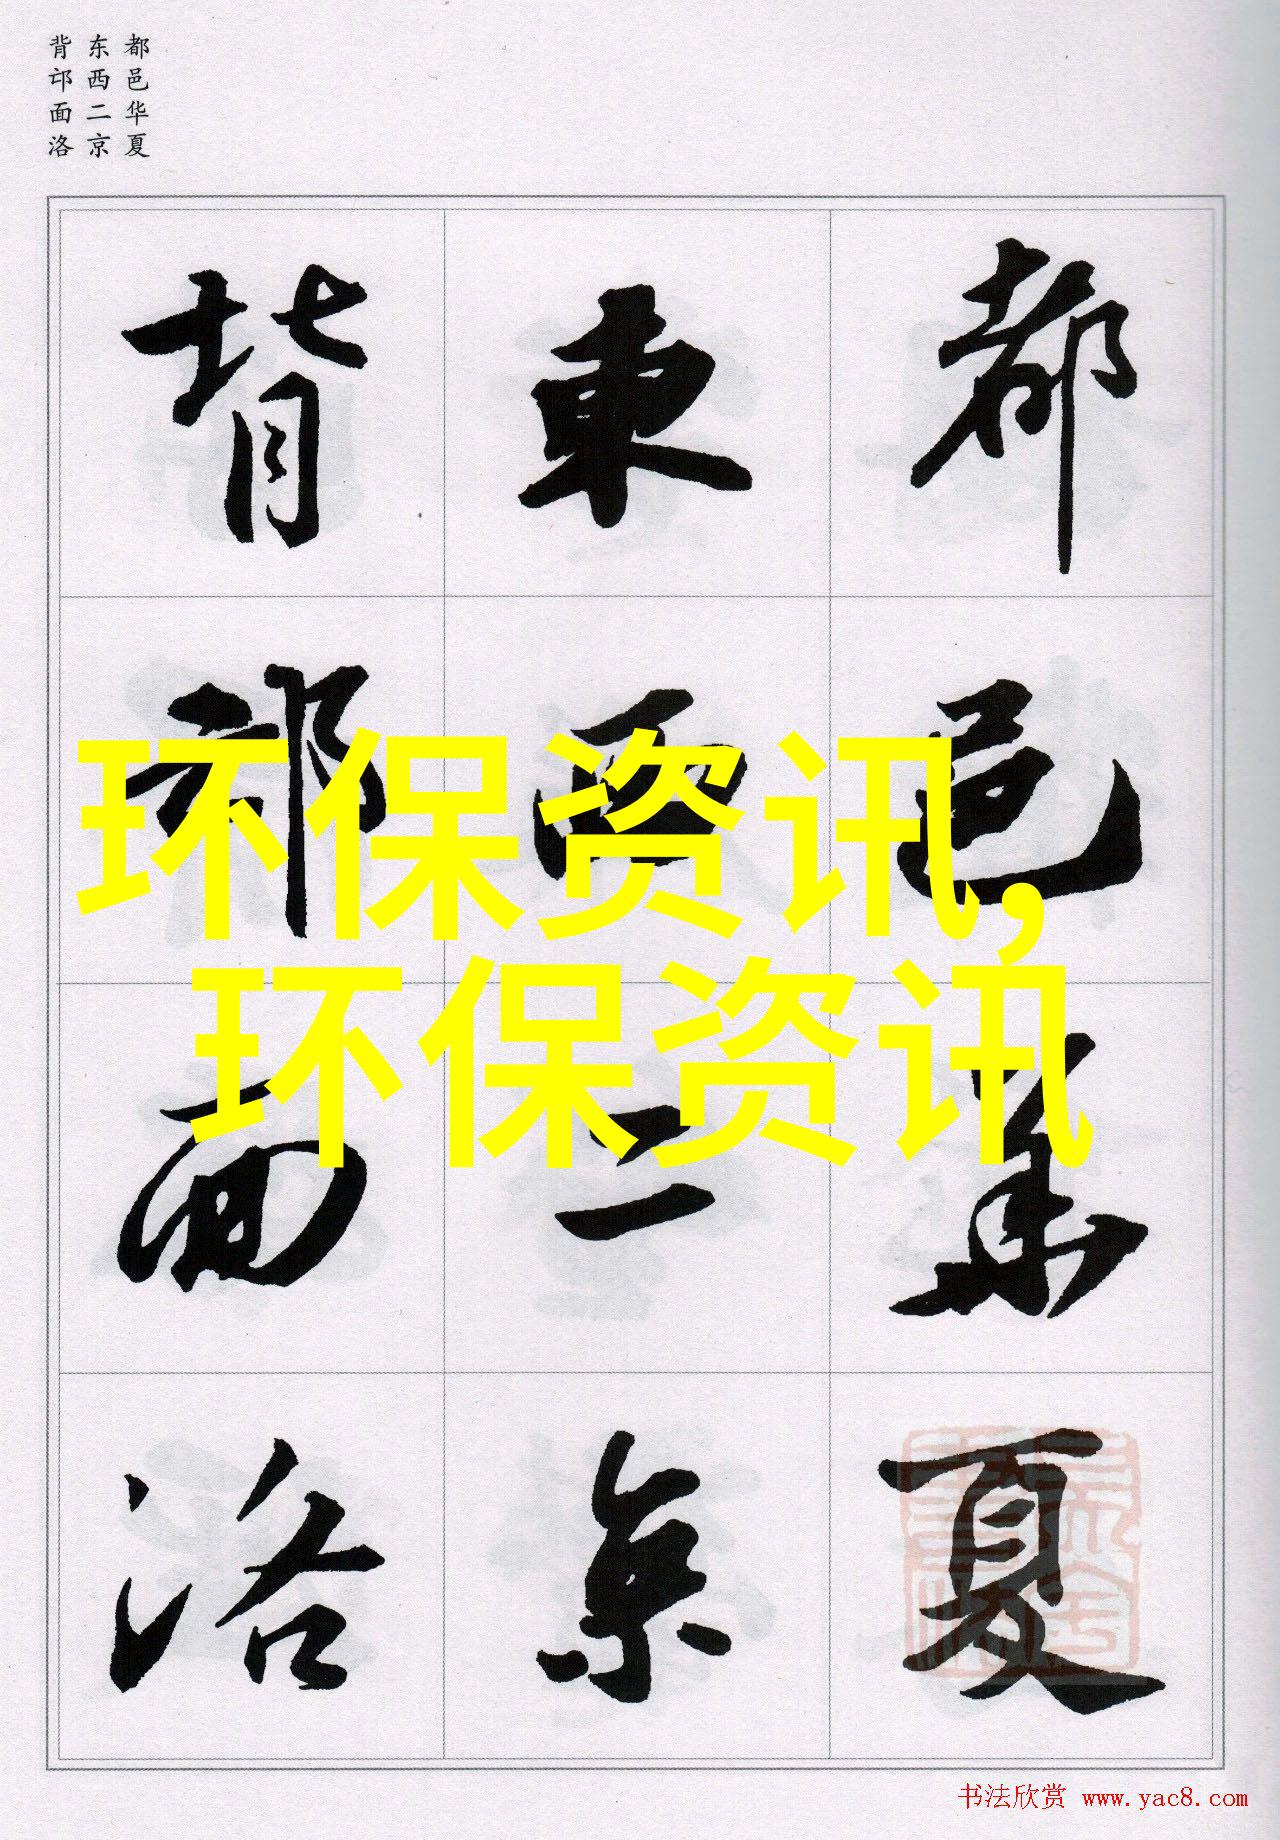 都邑华夏
东西二京
背邙面洛
都邑華夏
東西二京
背邙面洛
环保资讯,
环保资讯
书法欣赏 www.yac8.com